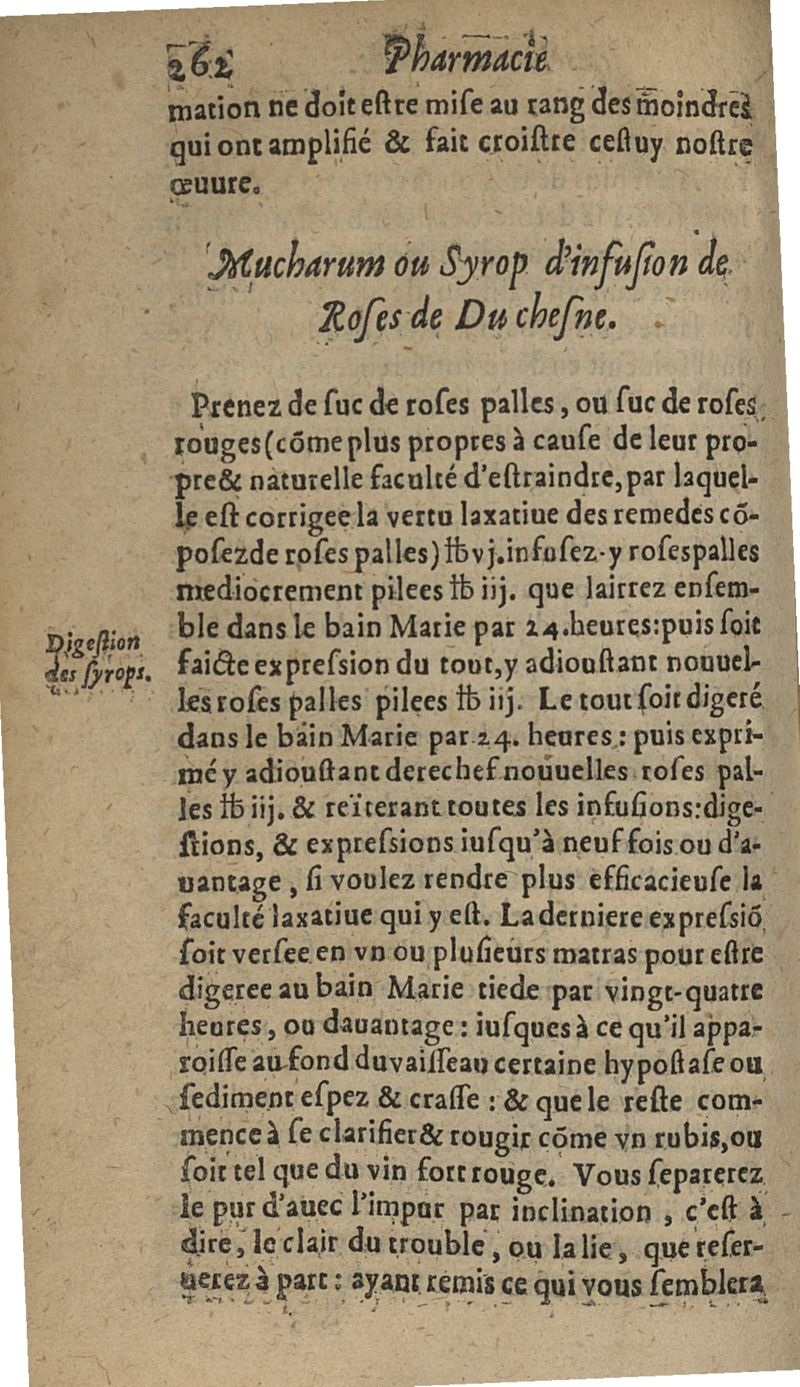 262 Pharmacie
mation ne doit eſtre miſe au rang des moindres
qui ont amplifié & fait croiſtre ceſtuy noſtre
œuure.
Mucharum ou Syrop d'infuſion de
Roſes de Du cheſne.
Prenez de ſuc de roſes palles, ou ſuc de roſes
rouges (cõme plus propres à cauſe de leur pro-
pre & naturelle faculté d'eſtraindre, par laquel-
le eſt corrigee la vertu laxatiue des remedes cõ-
poſez de roſes palles) ℔ vj. infuſez-y roſes palles
mediocrement pilees ℔ iij. que lairrez enſem-
ble dans le bain Marie par 24. heures: puis ſoit
Digeſtion
des ſyrops.
faicte expreſsion du tout, y adiouſtant nouuel-
les roſes palles pilees ℔ iij. Le tout ſoit digeré
dans le bain Marie par 24. heures: puis expri-
mé y adiouſtant derechef nouuelles roſes pal-
les ℔ iij. & reïterant toutes les infuſions: dige-
ſtions, & expreſsions iuſqu'à neuf fois ou d'a-
uantage, ſi voulez rendre plus efficacieuſe la
faculté laxatiue qui y eſt. La derniere expreſsiõ
ſoit verſee en vn ou pluſieurs matras pour eſtre
digeree au bain Marie tiede par vingt-quatre
heures, ou dauantage: iuſques à ce qu'il appa-
roiſſe au fond du vaiſſeau certaine hypoſtaſe ou
ſediment eſpez & craſſe: & que le reſte com-
mence à ſe clarifier & rougir cõme vn rubis, ou
ſoit tel que du vin fort rouge. Vous ſeparerez
le pur d'auec l'impur par inclination, c'eſt à
dire, le clair du trouble, ou la lie, que reſer-
uerez à part: ayant remis ce qui vous ſemblera